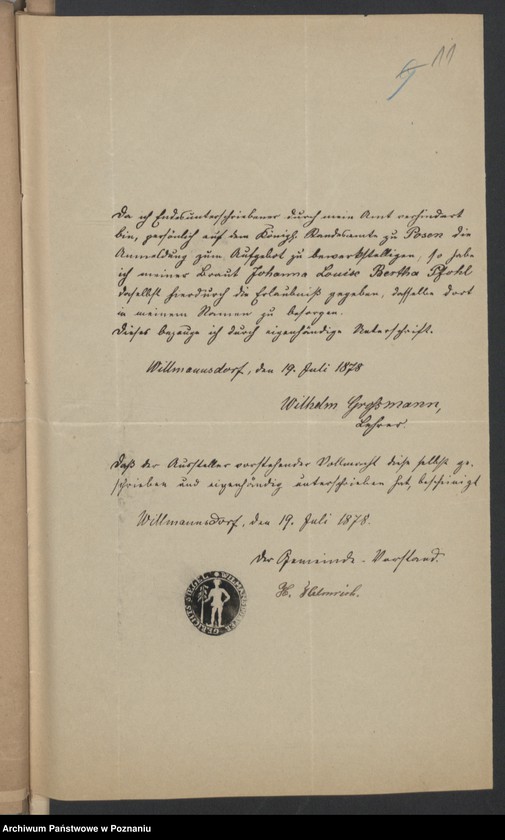 11
Da ich Endesunterschriebener durch mein Amt verhindert
bin, persönlich auf dem Königl. Standesamte zu Posen die
Anmeldung zum Aufgebot zu bewerkstelligen, so habe
ich meiner Braut Johanna Louise Bertha Pfohl
daselbst hierdurch die Erlaubniß gegeben, dasselbe dort
in meinem Namen zu besorgen.
Dieses bezeuge ich durch eigenhändige Unterschrift.
Willmannsdorf, den 19. Juli 1878
Wilhelm Großmann,
Lehrer
Daß der Aussteller vorstehender Vollmacht diese selbst ge-
schrieben und eigenhändig unterschrieben hat, bescheinigt
Willmannsdorf, den 19. Juli 1878.
Der Gemeinde-Vorstand.
H. Helmrich.
GERICHTS SIEGEL
Archiwum Państwowe w Poznaniu